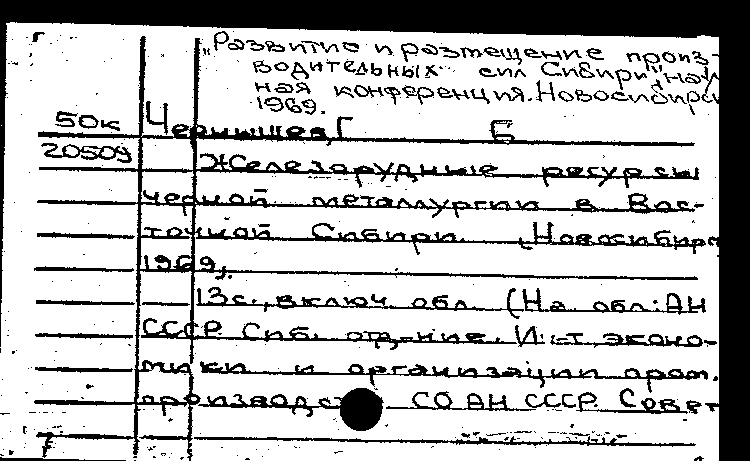 „Развитие и размещение произ-
водительных сил Сибири",
ная конференция. Новосибирск
1969.
50к Чернышев, Г Б
20509 Железорудные ресурсы
черной металлургии в Вос-
точной Сибири. Новосибирск
1969,.
13с., включ обл. (На обл: АН
СССР. Сиб. отд-ние. Ин-т эконо-
мики и организации пром.
производст СО АН СССР. Совет